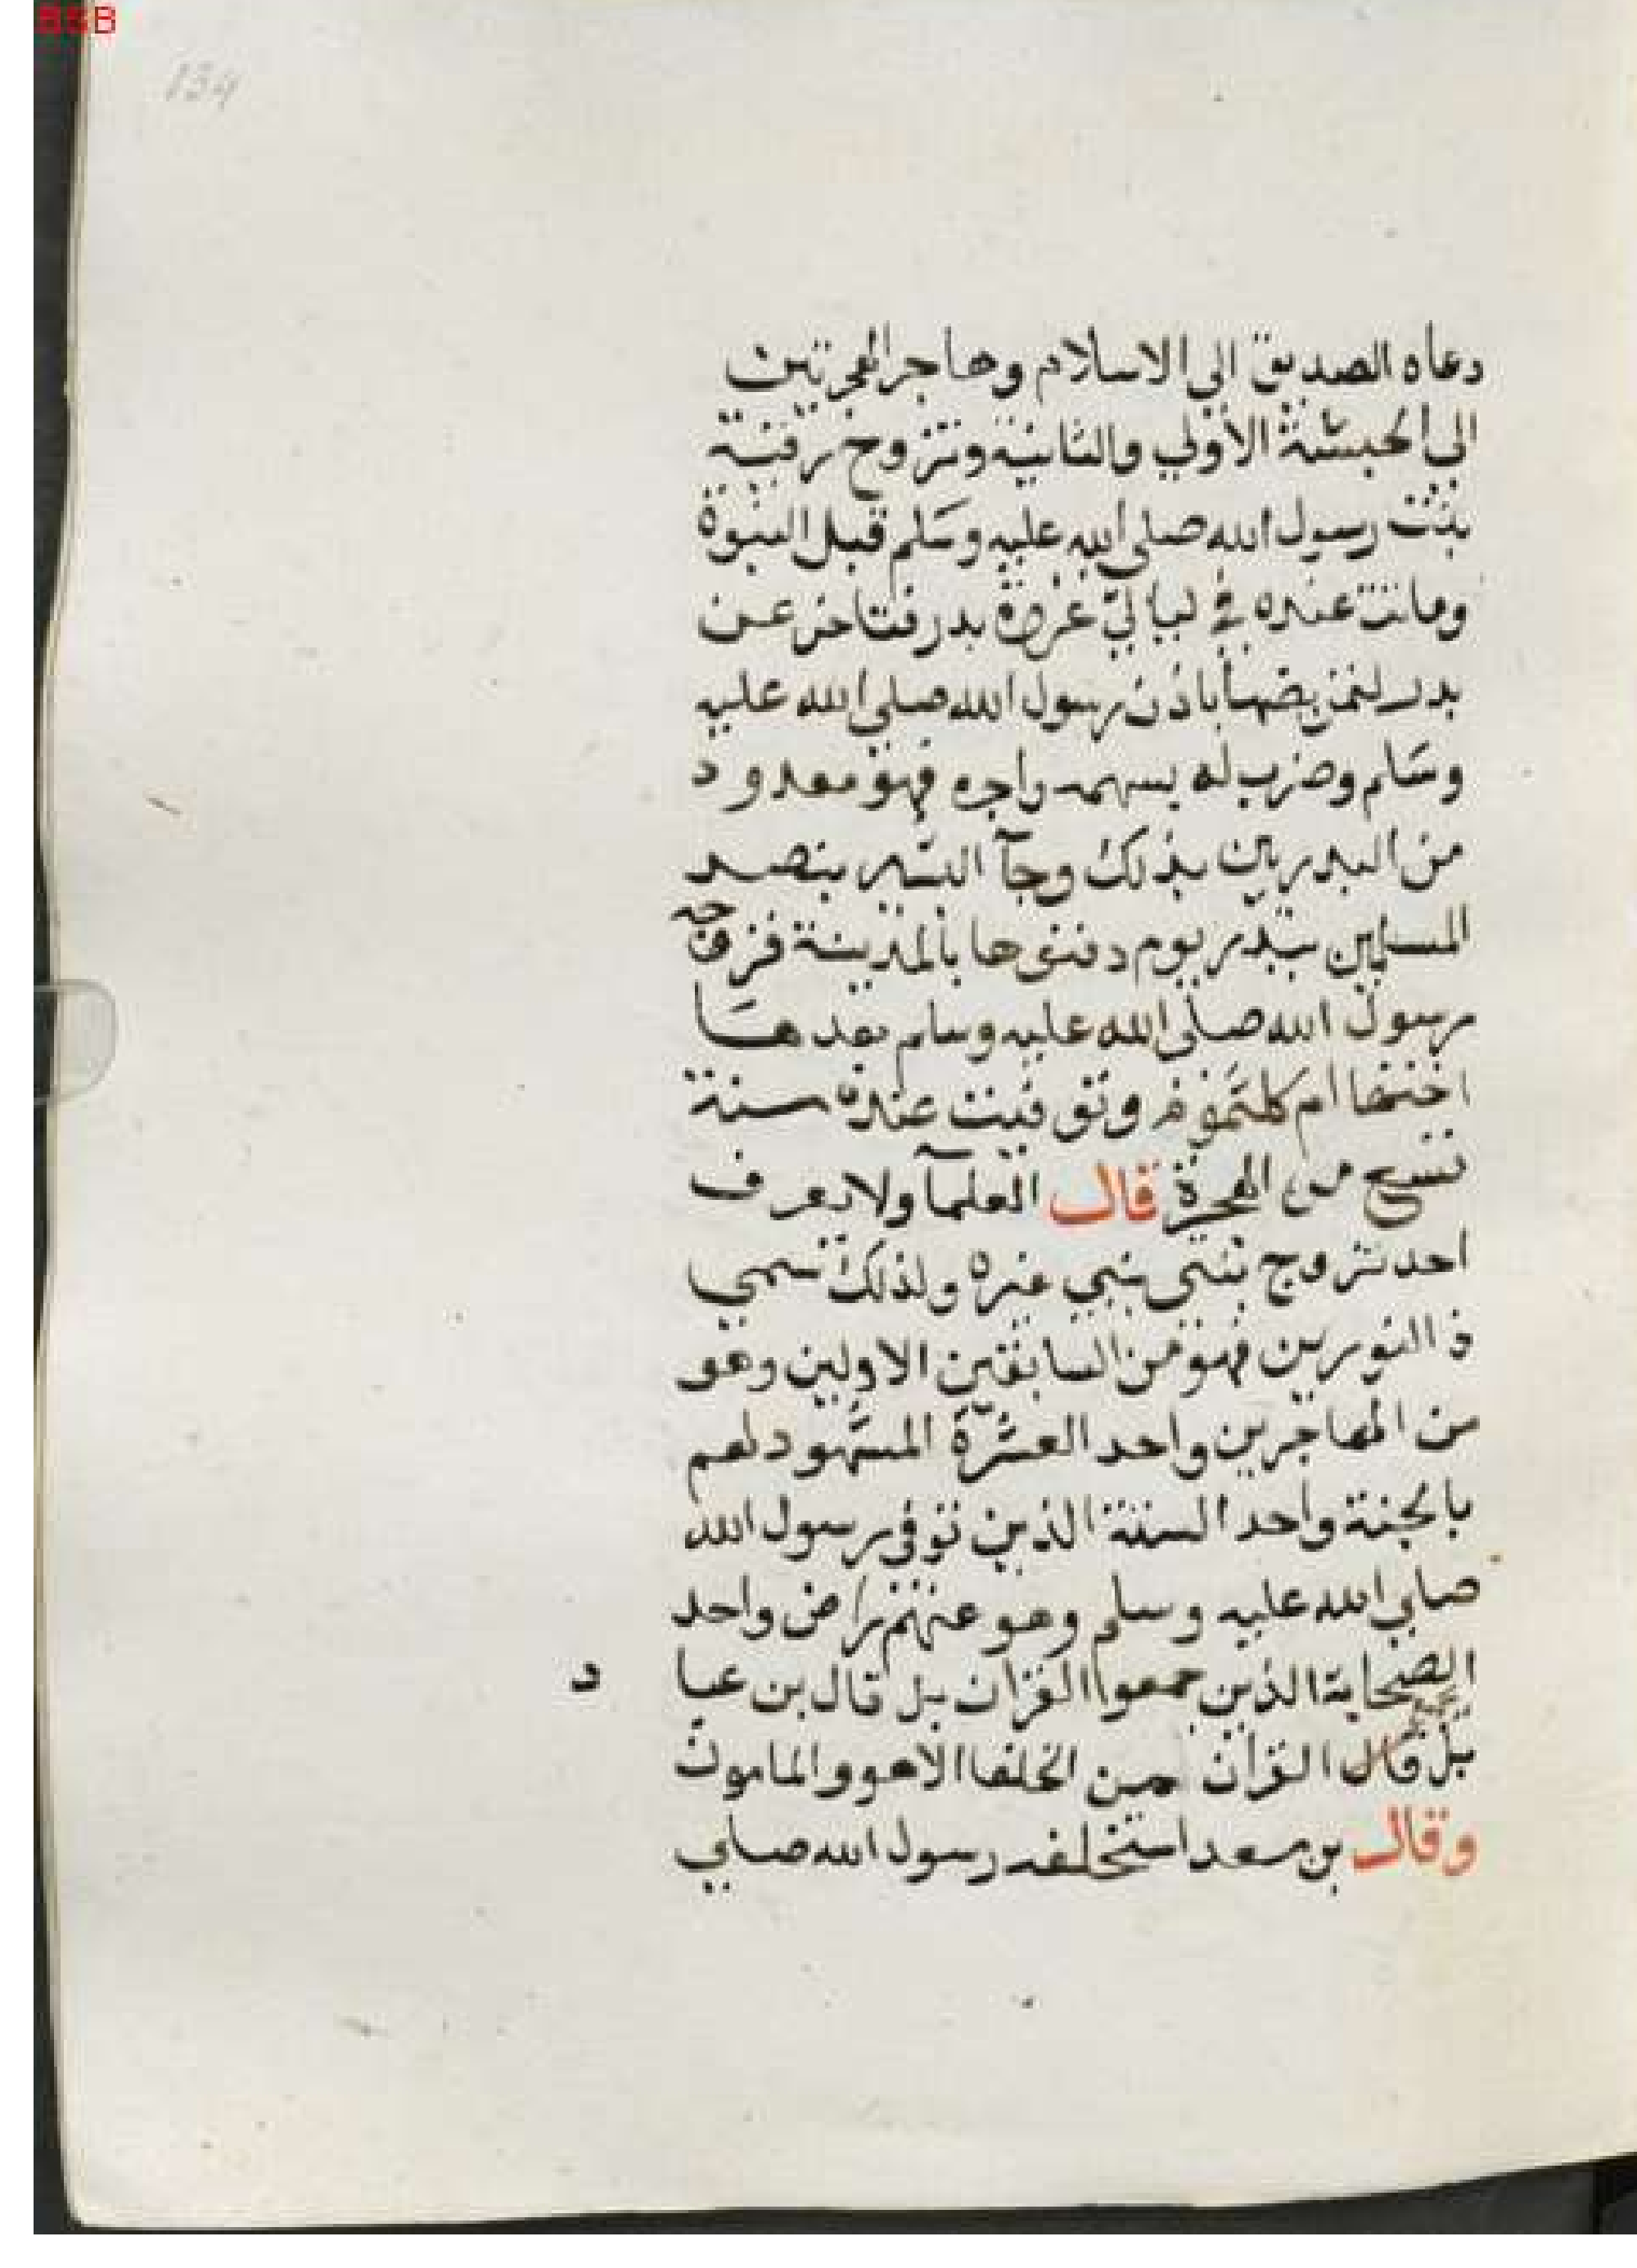 BSB
134
دعاه الصديق الي الاسلام وهاجر الهجرتين
الي الحبشة الأولي والثانية وتزوج رقية
بنت رسول الله صلى الله عليه وسلم قبل النبوة
وماتت عنده في ليالي غزوة بدر فتاخر عن
بدر لتمريضها باذن رسول الله صلي الله عليه
وسلم وضرب له بسهمه واجره فهو معدود
من البدريين بذلك وجآ البشير بنصر
المسلمين ببدر يوم دفنوها بالمدينة فزوجه
رسول الله صلى الله عليه وسلم بعدها
اختها ام كلثوم وتوفيت عنده سنة
تسع من الهجرة قال العلمآ ولا يعرف
احد تزوج بنتي نبي غيره ولذلك سمي
ذ النورين فهو من السابقين الاولين وهو
من المهاجرين واحد العشرة المشهود لهم
بالجنة واحد الستة الذين توفي رسول الله
صلي الله عليه وسلم وهو عنهم راض واحد
الصحابة الذين جمعوا القرآن بل قال بن عبا د
بل قال القرآن من الخلفا الا هو والمامون
وقال بن سعد استخلفه رسول الله صلي